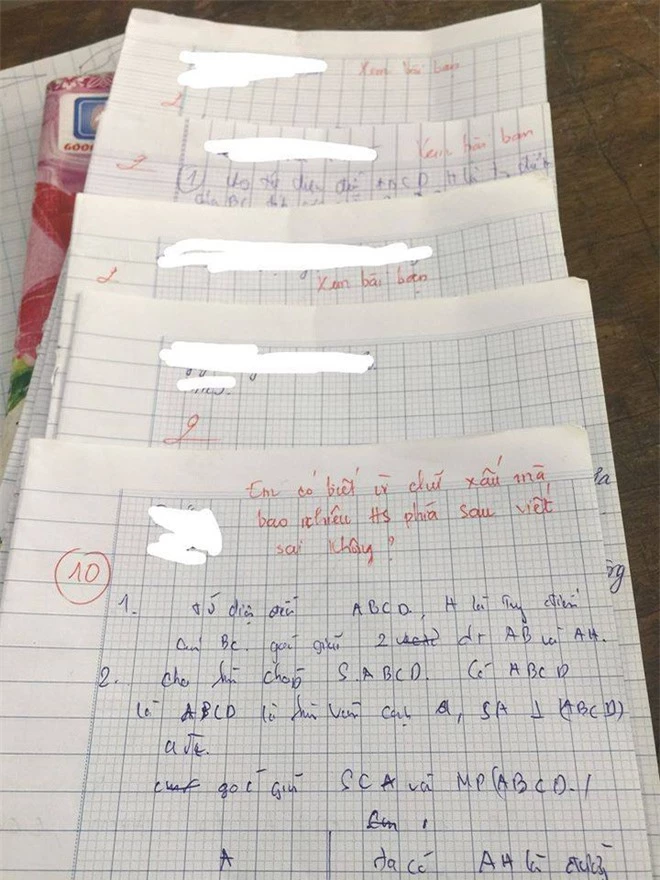 Xem bài bạn
2
GOO
Xem bài bạn
2
1 cho tứ diện đều ABCD, H là
của BC
Xem bài bạn
2
2
Em có biết vì chữ xấu mà
bao nhiêu HS phía sau viết
sai không?
10
1. tứ diện đều ABCD, H là trung điểm
BC. góc giữa 2 dt AB và AH.
2. cho hình chóp S.ABCD. Có ABCD
là ABCD là hình vuông cạnh a, SA ⊥ (ABCD)
góc giữa SCA và MP(ABCD.)
A
Ta có AH là